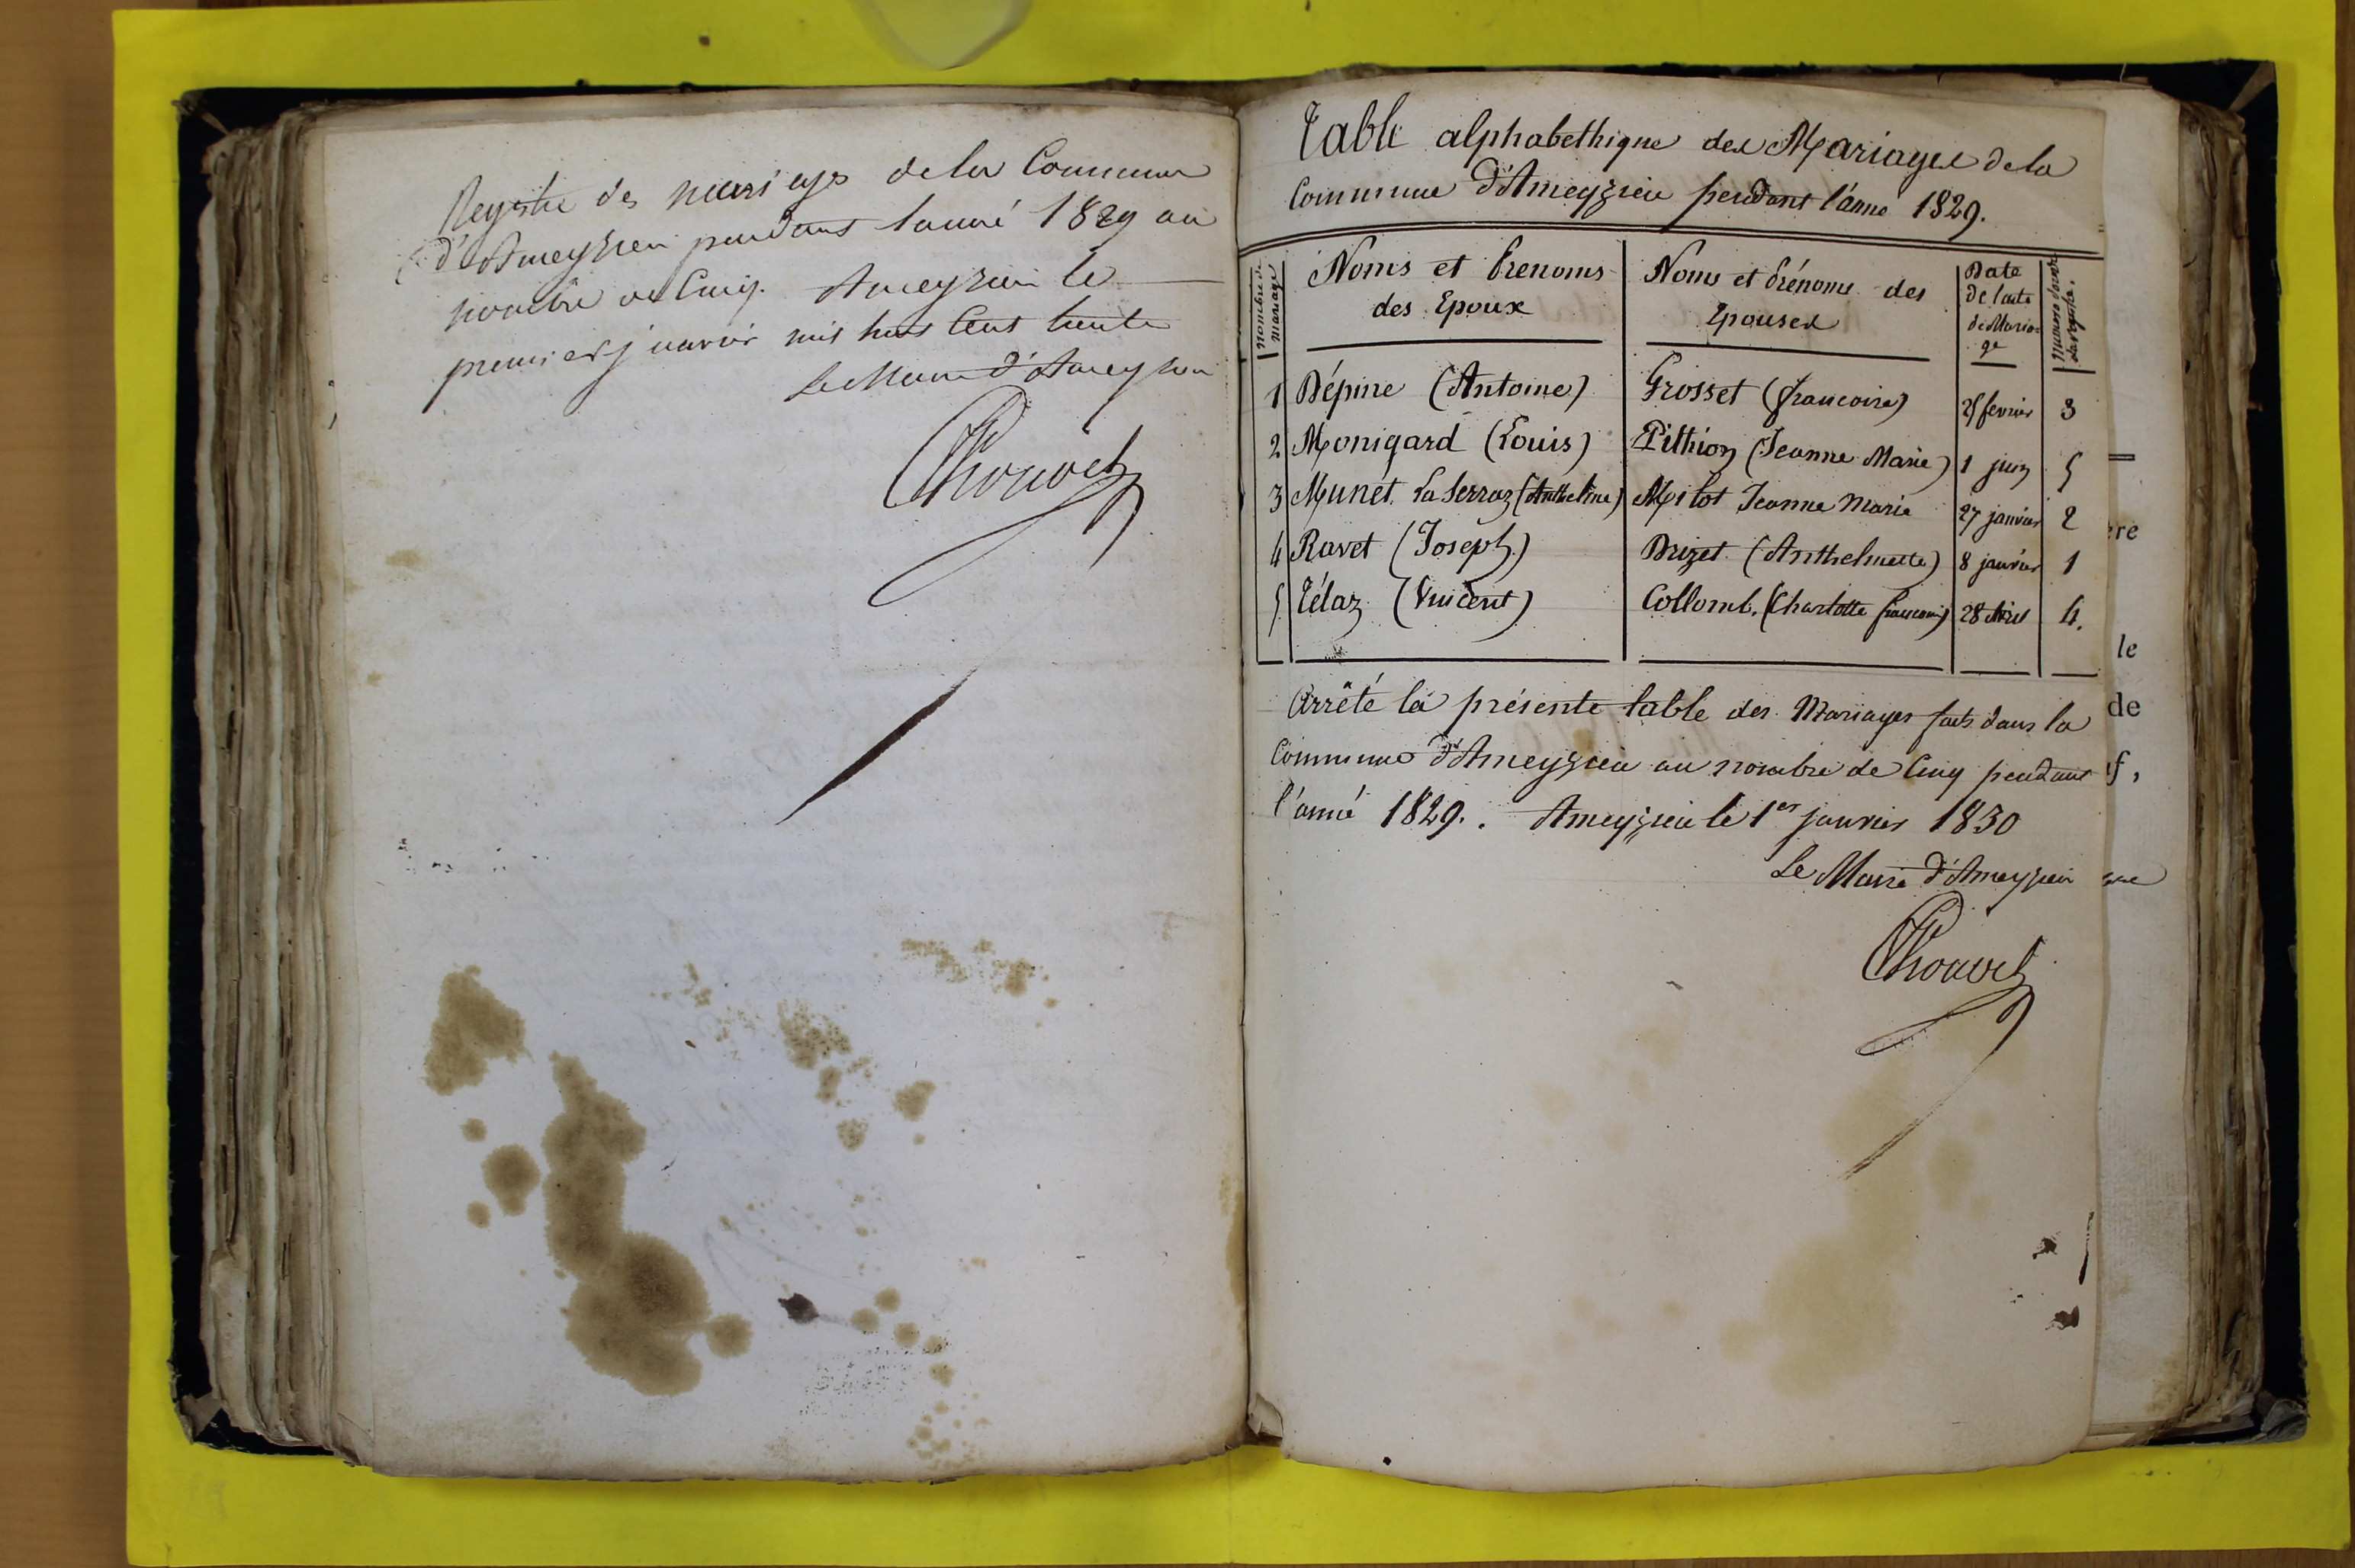 Registre des mariages de la Commune
d'Ameyzieu pendant l'anné 1829 au
nombre de Cinq. Ameyzieu le
premier janvier mil huit Cent trente
Le Maire d'Ameyzieu
Table alphabethique des Mariages de la
Commune d'Ameyzieu pendant l'anné 1829.
nombre de mariage
Noms et Prenoms des Epoux
Noms et Prénoms des Epouses
Date de l'acte de Mariage
1 Dépine (Antoine) Grosset (francoise) 25 fevrier 3
2 Monigard (Louis) Pithion (Jeanne Marie) 1 juin 5
3 Munet La Serraz (Anthelme) Milot Jeanne Marie 27 janvier 2
4 Ravet (Joseph) Brizet (Anthelmette) 8 janvier 1
5 Télaz (Vincent) Collomb. (Charlotte francoise) 28 Avril 4.
Arrêté la présente table des Mariages faits dans la
Commune d'Ameyzieu au nombre de Cinq pendant
l'anné 1829. Ameyzieu le 1er janvier 1830
Le Maire d'Ameyzieu
ère
le
de
f,